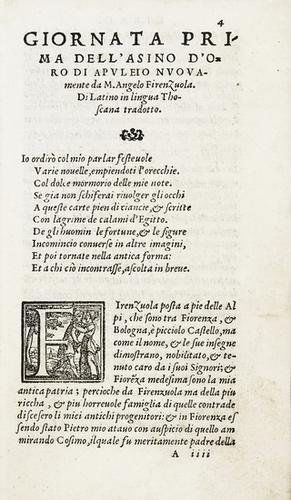 4
GIORNATA PRI-
MA DELL'ASINO D'O-
RO DI APVLEIO NVOVA-
mente da M. Angelo Firenzuola.
Di Latino in lingua Tho-
scana tradotto.
Io ordirò col mio parlar festeuole
Varie nouelle, empiendoti l'orecchie.
Col dolce mormorio delle mie note.
Se gia non schiferai riuolger gli occhi
A queste carte pien di ciance, & scritte
Con lagrime de calami d'Egitto.
De gli huomin le fortune, & le figure
Incomincio conuerse in altre imagini,
Et poi tornate nella antica forma:
Et a chi ciò incontrasse, ascolta in breue.
Irenzuola posta a pie delle Al
pi, che sono tra Fiorenza, &
Bologna, è picciolo Castello, ma
come il nome, & le sue insegne
dimostrano, nobilitato, & te-
nuto caro da i suoi Signori; &
Fiorēza medesima sono la mia
antica patria; percioche da Firenzuola ma della piu
riccha, & piu horreuole famiglia di quelle contrade
discesero li miei antichi progenitori: & in Fiorenza es
sendo stato Pietro mio atauo con auspicio di quello am
mirando Cosimo, ilquale fu meritamente padre della
A iiii